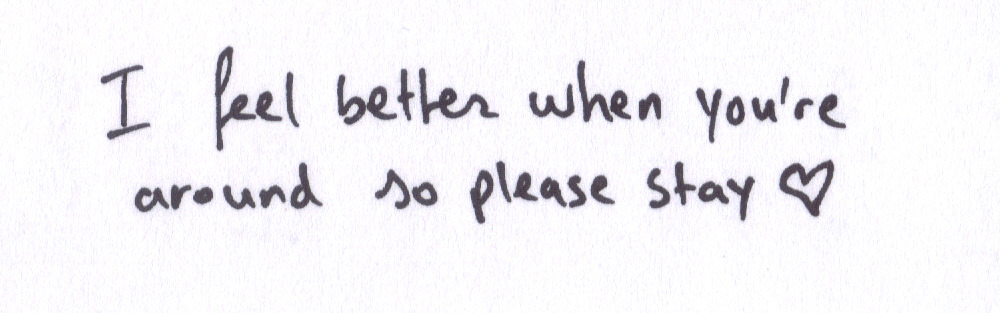 I feel better when you're
around so please stay ♡